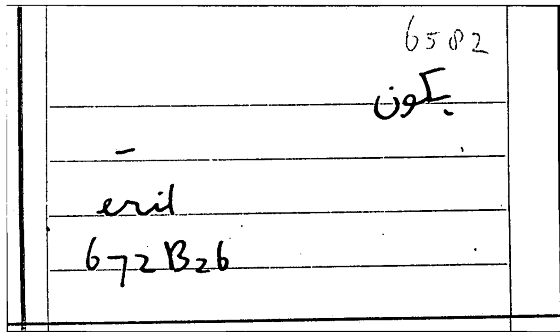 6582
بكون
–
eril
672B26